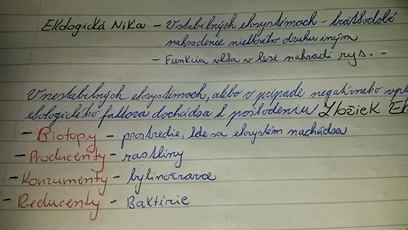 Ekologická Nika - V stabilných ekosystémoch - krátkodobé
nahradenie niektorého druhu iným
- Funkcia vlka v lese nahradí rys. -
V nestabilných ekosystémoch, alebo v prípade negatívneho
ekologického faktora dochádza k poškodeniu Zložiek
- Biotopy - prostredie, kde sa ekosystém nachádza
- Producenty - rastliny
- Konzumenty - bylinožravce
- Reducenty - Baktérie